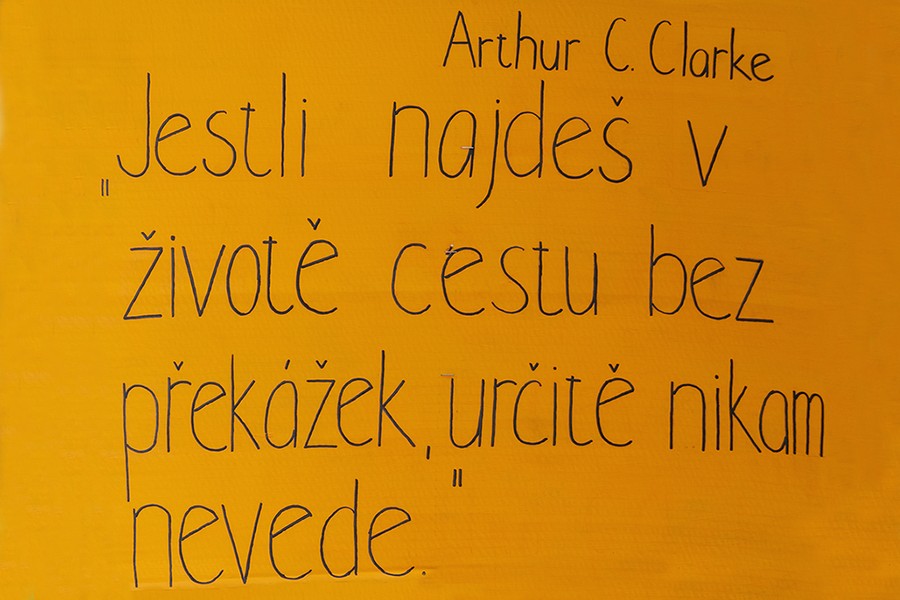 Arthur C. Clarke
„Jestli najdeš v
životě cestu bez
překážek, určitě nikam
nevede."